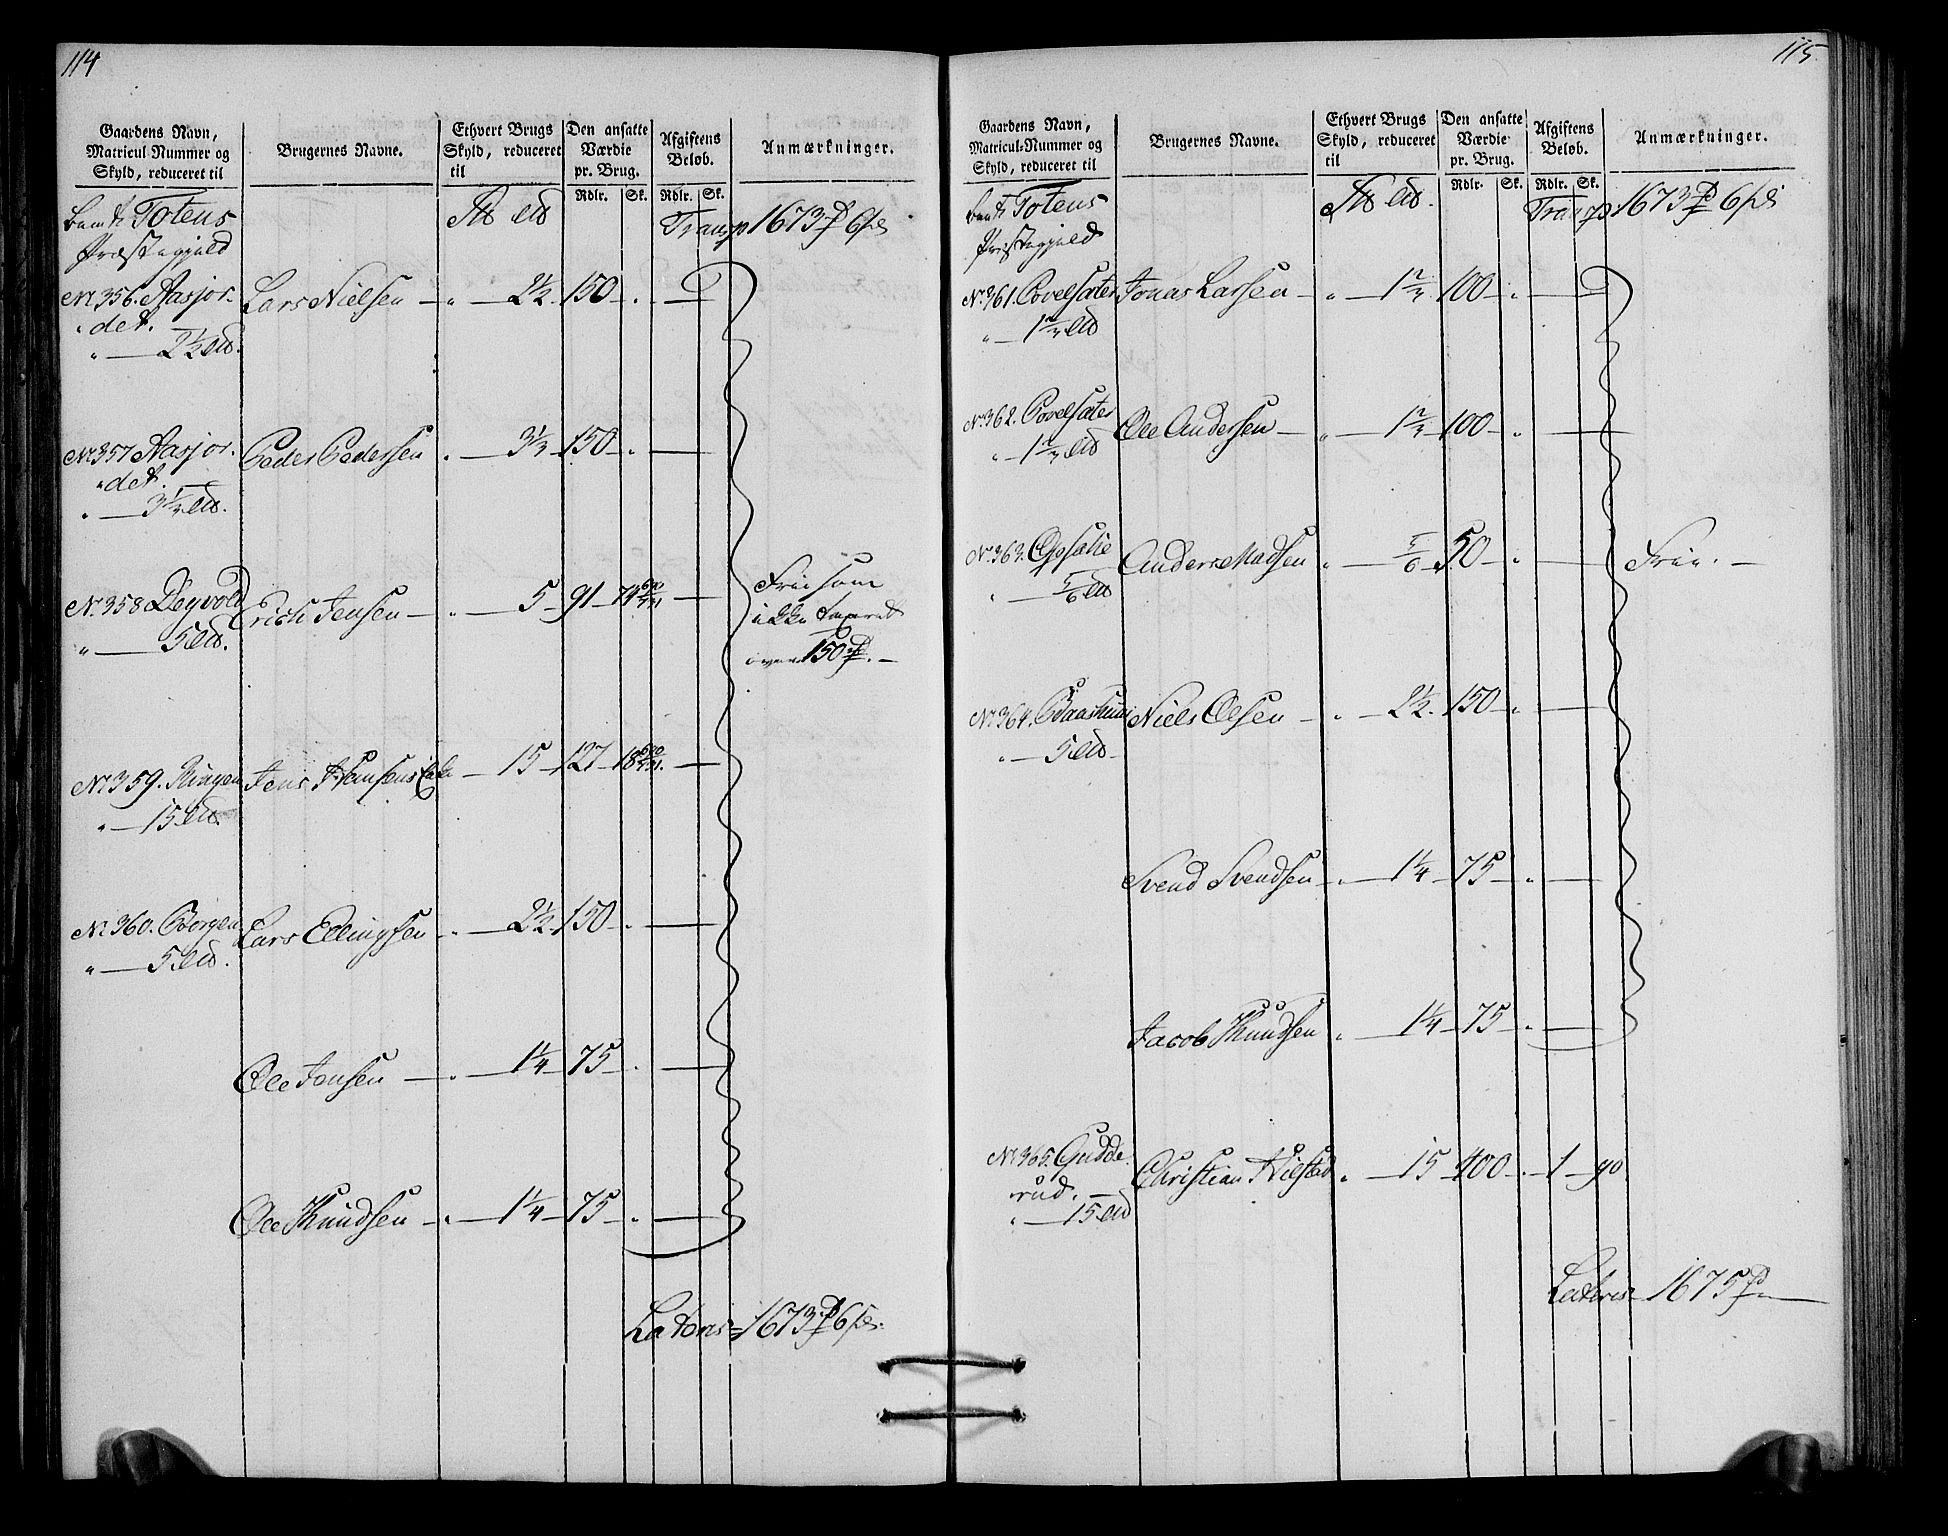 114
Gaardens Navn,
Matricul-Nummer og
Skyld, reduceret til
Brugernes Navne.
Ethvert Brugs
Skyld, reduceret
til
Den ansatte
Værdie
pr. Brug.
Rdlr. Sk.
Afgiftens
Beløb.
Rdlr. Sk.
Anmærkninger.
Totens
Præstegjeld
Transp 1673 6
No 356. Aasjor-
det.
2½
Lars Nielsen 2½ 150
No 357 Aasjor-
det.
3⅓
Peder Pedersen 3⅓ 150
No 358 Degvold
5
Erich Jensen 5 91 74
Frie som
ikke taxeret
over 150
No 359. Ringen
15
Jens Hansens Enke 15 127 18
No 360. Borgen
5
Lars Ellingsen 2½ 150
Ole Jonsen 1¼ 75
Ole Knudsen 1¼ 75
Lateris 1673 6
115
Gaardens Navn,
Matricul-Nummer og
Skyld, reduceret til
Brugernes Navne.
Ethvert Brugs
Skyld, reduceret
til
Den ansatte
Værdie
pr. Brug.
Rdlr. Sk.
Afgiftens
Beløb.
Rdlr. Sk.
Anmærkninger.
Totens
Præstegjeld
Transp 1673 6
No 361. Povelsæter
1⅔
Jonas Larsen 1⅔ 100
No 362. Povelsæter
1⅔
Ole Andersen 1⅔ 100
No 363. Opsalie
5/6
Anders Madsen 5/6 50
Frie.
No 364.
5
Niels Olsen 2½ 150
Svend Svendsen 1¼ 75
Jacob Knudsen 1¼ 75
No 365. Gudde-
rud.
15
Christian Hielstad 15 400 1 90
Lateris 1675